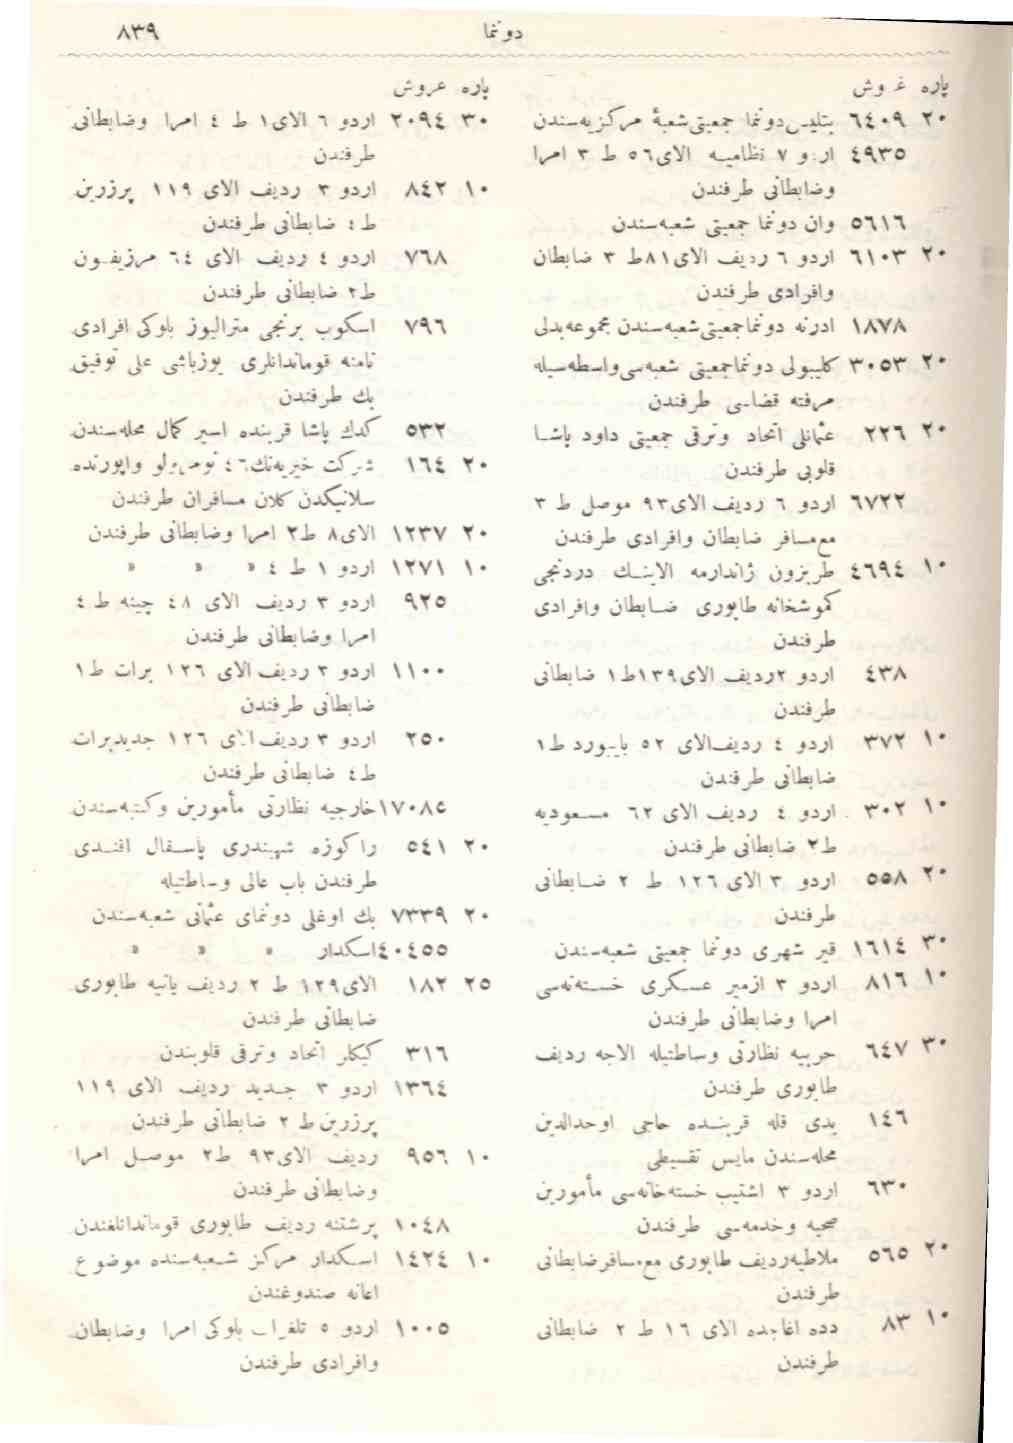 دونما ٨٣٩
پاره غروش
٢٠ ٦٤٠٩ بتليس دونما جمعيتى شعبۀ مركزيه سندن
٤٩٣٥ اردو ٧ نظاميه الاى ٥٦ ط ٣ امرا
وضابطانى طرفندن
٥٦١٦ وان دونما جمعيتى شعبه سندن
٢٠ ٦١٠٣ اردو ٦ رديف الاى ٨١ ط ٣ ضابطان
وافرادى طرفندن
١٨٧٨ ادرنه دونما جمعيتى شعبه سندن مجموعه بدلى
٢٠ ٣٠٥٣ كليبولى دونما جمعيتى شعبه سى واسطه سيله
مرفته قضاسى طرفندن
٢٠ ٢٢٦ عثمانلى اتحاد وترقى جمعيتى داود پاشا
قلوبى طرفندن
٦٧٢٢ اردو ٦ رديف الاى ٩٣ موصل ط ٣
مع مسافر ضابطان وافرادى طرفندن
١٠ ٤٦٩٤ طربزون ژاندارمه الاينك دردنجى
كموشخانه طابورى ضابطان وافرادى
طرفندن
٤٣٨ اردو ٢ رديف الاى ١٣٩ ط ١ ضابطانى
طرفندن
١٠ ٣٧٢ اردو ٤ رديف الاى ٥٢ بايبورد ط ١
ضابطانى طرفندن
١٠ ٣٠٢ اردو ٤ رديف الاى ٦٢ مسعوديه
ط ٢ ضابطانى طرفندن
٢٠ ٥٥٨ اردو ٣ الاى ١٢٦ ط ٢ ضابطانى
طرفندن
٣٠ ١٦١٤ قير شهرى دونما جمعيتى شعبه سندن
١٠ ٨١٦ اردو ٣ ازمير عسكرى خسته نه سى
امرا وضابطانى طرفندن
٣٠ ٦٤٧ حربيه نظارتى وساطتيله الاجه رديف
طابورى طرفندن
١٤٦ يدى قله قربنده حاجى اوحدالدين
محله سندن مايس تقسيطى
٦٣٠ اردو ٣ اشتيب خسته خانه سى مأمورين
صحيه وخدمه سى طرفندن
٢٠ ٥٦٥ ملاطيه رديف طابورى مع مسافر ضابطانى
طرفندن
١٠ ٨٣ دده اغاجده الاى ١٦ ط ٢ ضابطانى
طرفندن
پاره غروش
٣٠ ٢٠٩٤ اردو ٦ الاى ١ ط ٤ امرا وضابطانى
طرفندن
١٠ ٨٤٢ اردو ٣ رديف الاى ١١٩ پرزرين
ط ٤ ضابطانى طرفندن
٧٦٨ اردو ٤ رديف الاى ٦٤ مرزيفون
ط ٢ ضابطانى طرفندن
٧٩٦ اسكوب برنجى متراليوز بلوكى افرادى
نامنه قوماندانلرى يوزباشى على توفيق
بك طرفندن
٥٣٢ كدك پاشا قربنده اسير كمال محله سندن
٢٠ ١٦٤ شركت خيريه نك ٤٦ نومرولو واپورنده
سلانيكدن كلان مسافران طرفندن
٢٠ ١٢٣٧ الاى ٨ ط ٢ امرا وضابطانى طرفندن
١٠ ١٢٧١ اردو ١ ط ٤ » » »
٩٢٥ اردو ٣ رديف الاى ٤٨ چينه ط ٤
امرا وضابطانى طرفندن
١١٠٠ اردو ٣ رديف الاى ١٢٦ برات ط ١
ضابطانى طرفندن
٢٥٠ اردو ٣ رديف الاى ١٢٦ جديد برات
ط ٤ ضابطانى طرفندن
١٧٠٨٥ خارجيه نظارتى مأمورين وكتبه سندن
٢٠ ٥٤١ راكوزه شهبندرى پاسقال افندى
طرفندن باب عالى وساطتيله
٢٠ ٧٣٣٩ بك اوغلى دونماى عثمانى شعبه سندن
٤٠٤٥٥ اسكدار » » »
٢٥ ١٨٢ الاى ١٢٩ ط ٢ رديف يانيه طابورى
ضابطانى طرفندن
٣١٦ كيكلر اتحاد وترقى قلوبندن
١٣٦٤ اردو ٣ جديد رديف الاى ١١٩
پرزرين ط ٢ ضابطانى طرفندن
١٠ ٩٥٦ رديف الاى ٩٣ ط ٢ موصل امرا
وضابطانى طرفندن
١٠٤٨ پرشتنه رديف طابورى قوماندانلغندن
١٠ ١٤٢٤ اسكدار مركز شعبه سنده موضوع
اعانه صندوغندن
١٠٠٥ اردو ٥ تلغراف بلوكى امرا وضابطان
وافرادى طرفندن